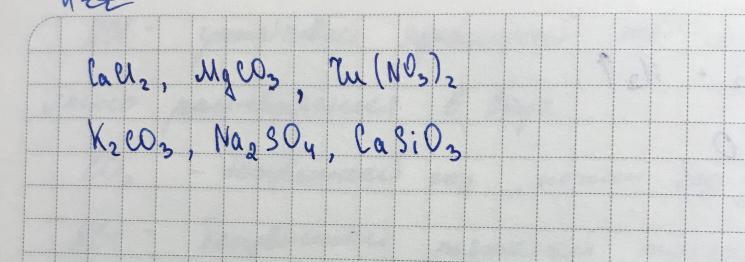 CaCl₂, MgCO₃, Zn(NO₃)₂
K₂CO₃, Na₂SO₄, CaSiO₃